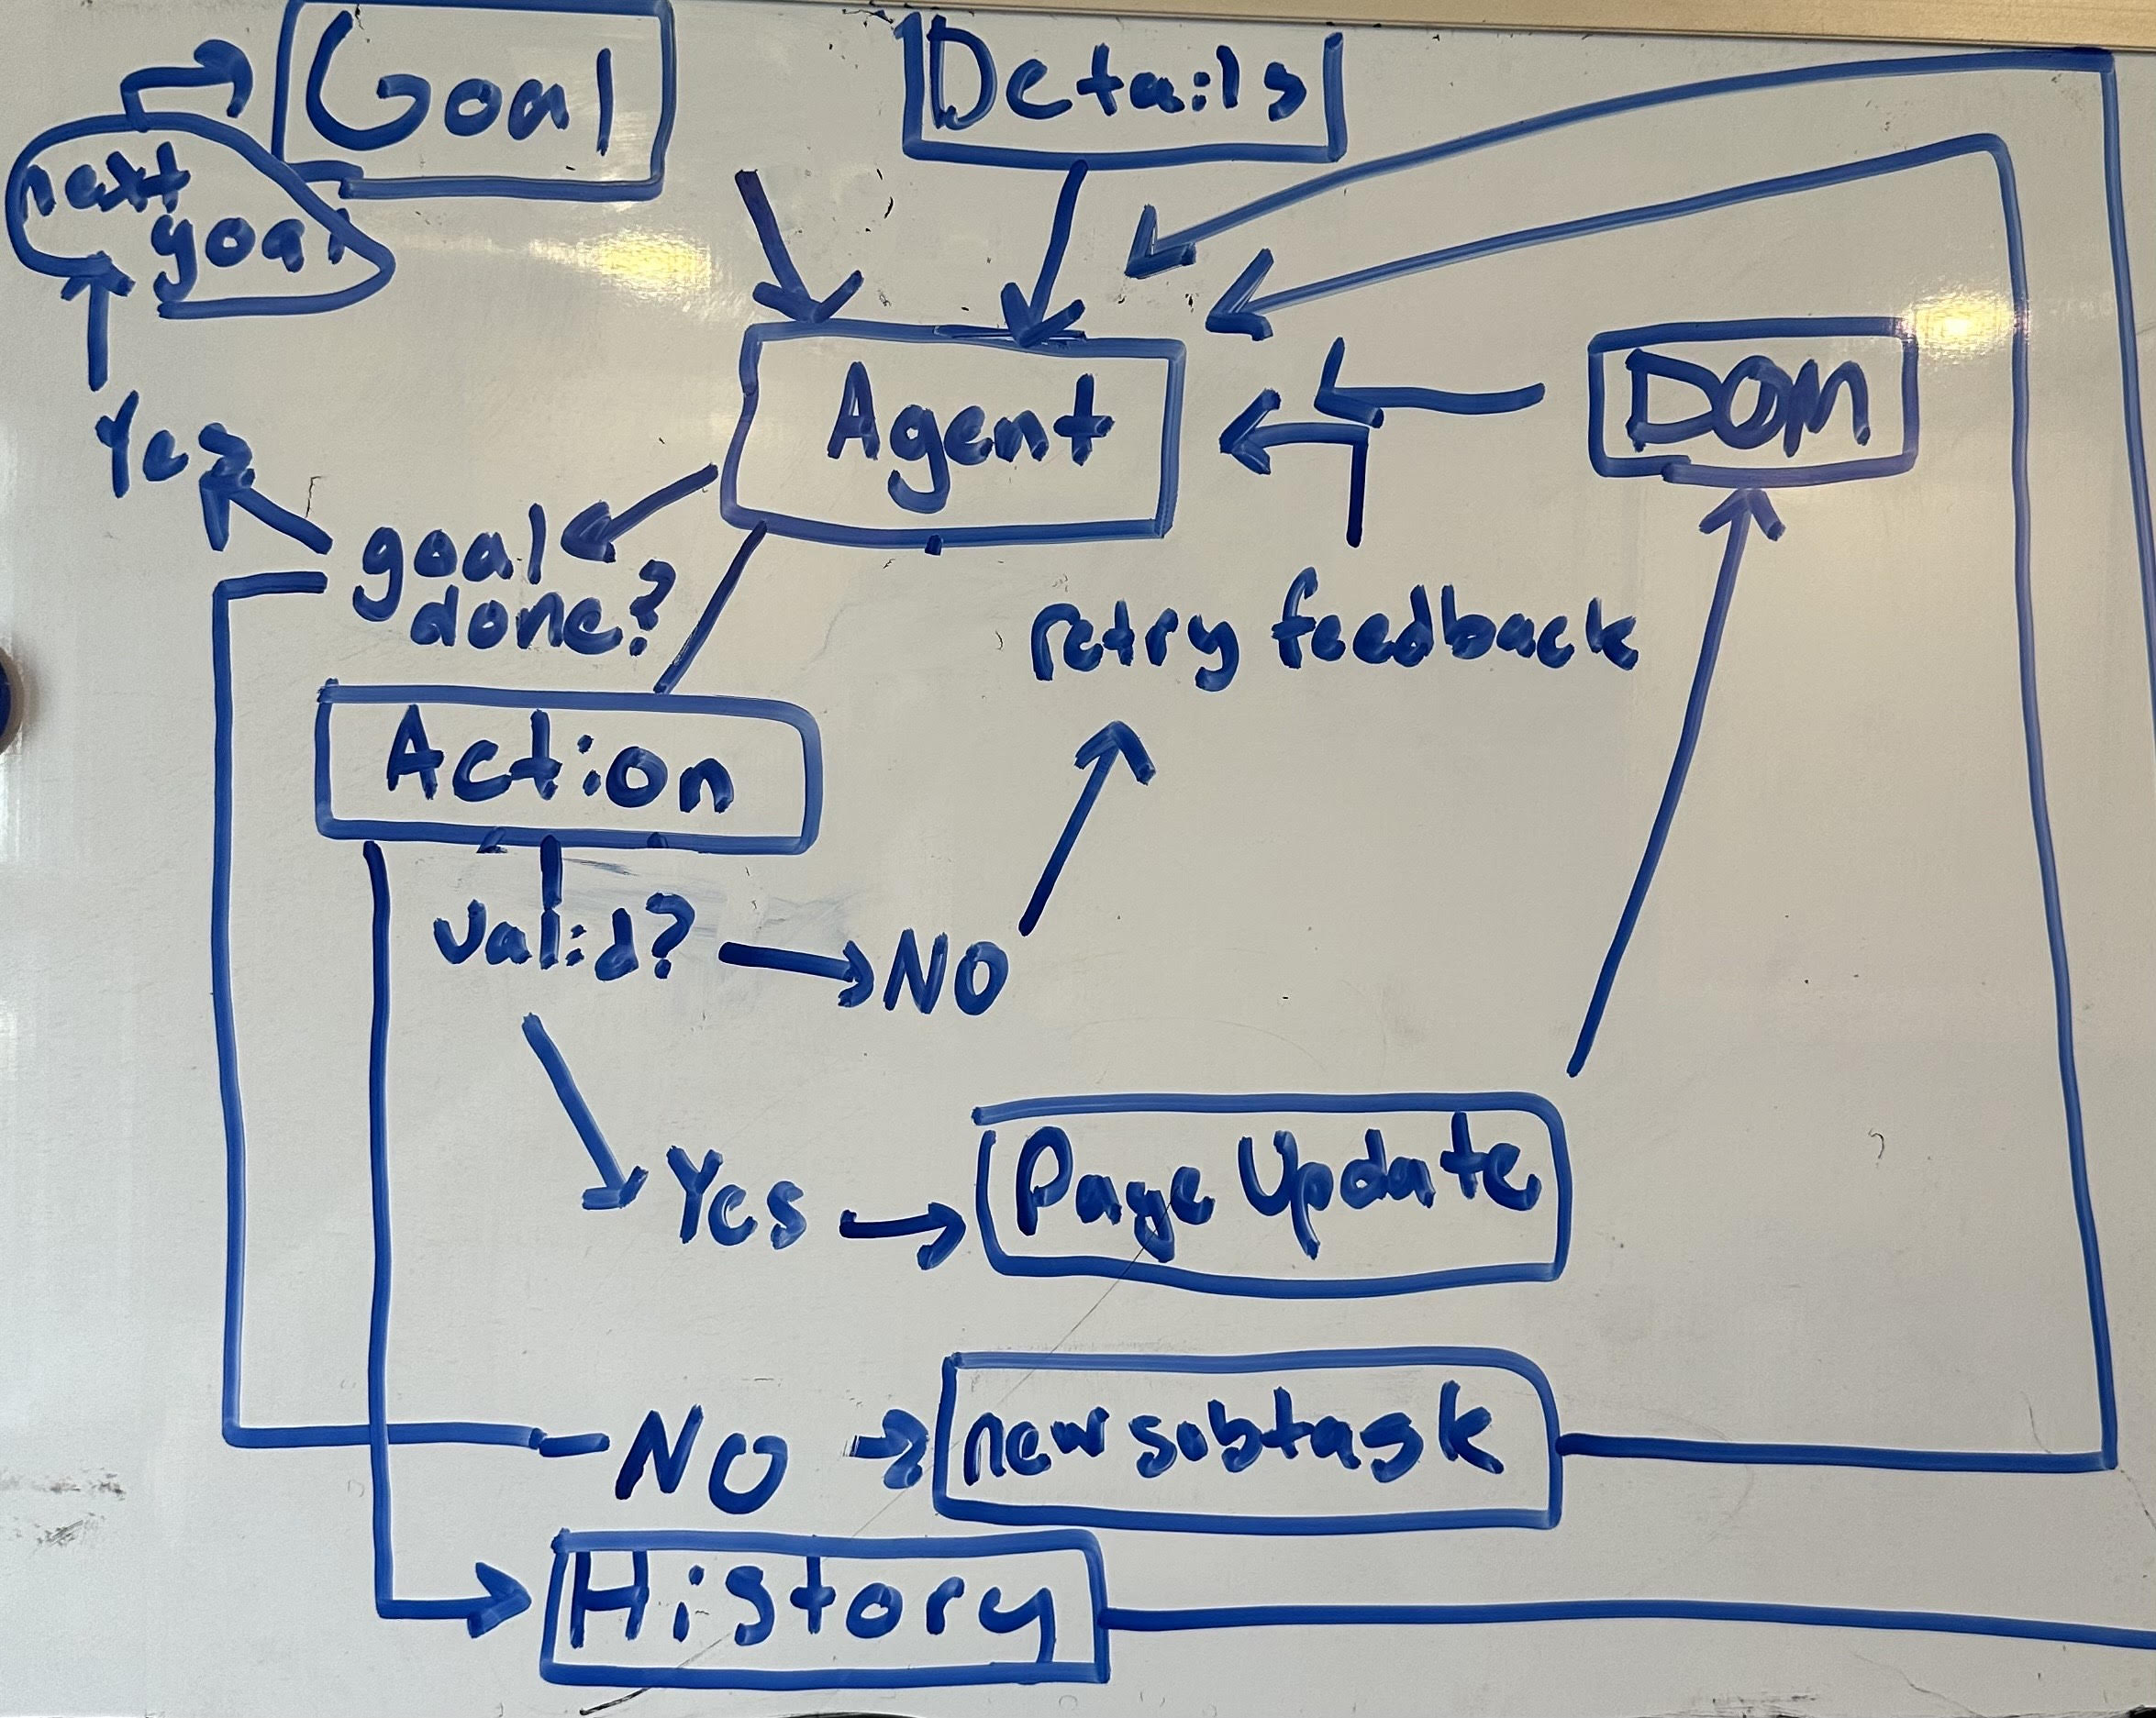 Goal
Details
next
goal
Agent
DOM
Yes
goal
done?
retry feedback
Action
valid?
NO
Yes
Page Update
NO
new subtask
History